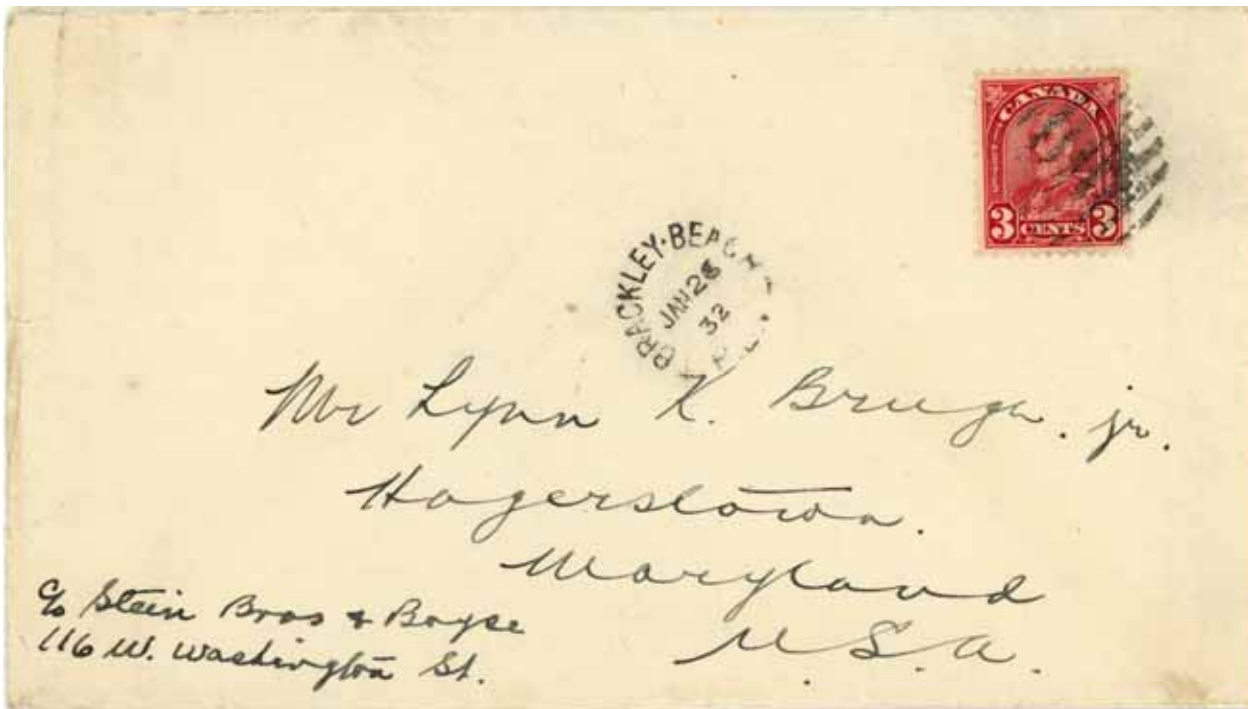 CANADA
3 CENTS 3
BRACKLEY·BEACH
JAN 26
32
P.E.I.
Mr Lynn K. Bruga. jr.
Hagerstown.
Maryland
U.S.A.
c/o Stein Bros & Boyce
116 W. Washington St.